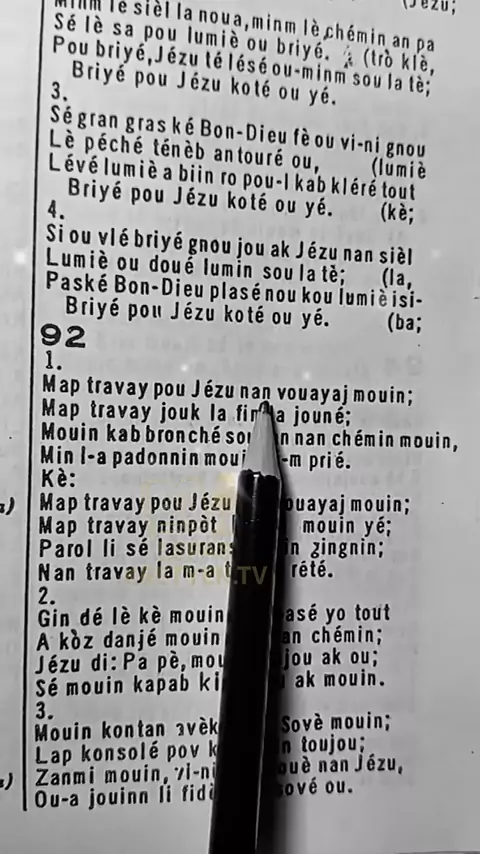 (Jézu;
Minm lè sièl la noua, minm lè chémin an pa
Sé lè sa pou lumiè ou briyé. (trò klè,
Pou briyé, Jézu té lésé ou-minm sou la tè;
Briyé pou Jézu koté ou yé.
3.
Sé gran gras ké Bon-Dieu fè ou vi-ni gnou
Lè péché ténèb antouré ou, (lumiè
Lévé lumiè a biin ro pou-l kab kléré tout
Briyé pou Jézu koté ou yé. (kè;
4.
Si ou vlé briyé gnou jou ak Jézu nan sièl
Lumiè ou doué lumin sou la tè; (la,
Paské Bon-Dieu plasé nou kou lumiè isi-
Briyé pou Jézu koté ou yé. (ba;
92
1.
Map travay pou Jézu nan vouayaj mouin;
Map travay jouk la fin a jouné;
Mouin kab bronché nan chémin mouin,
Min l-a padonnin -m prié.
Kè:
Map travay pou Jézu ouayaj mouin;
Map travay ninpòt mouin yé;
Parol li sé lasurans zingnin;
Nan travay la m-a rété.
2.
Gin dé lè kè mouin asé yo tout
A kòz danjé mouin an chémin;
Jézu di: Pa pè, jou ak ou;
Sé mouin kapab ak mouin.
3.
Mouin kontan avèk Sovè mouin;
Lap konsolé pov toujou;
Zanmi mouin, vi-ni nan Jézu,
Ou-a jouinn li sové ou.